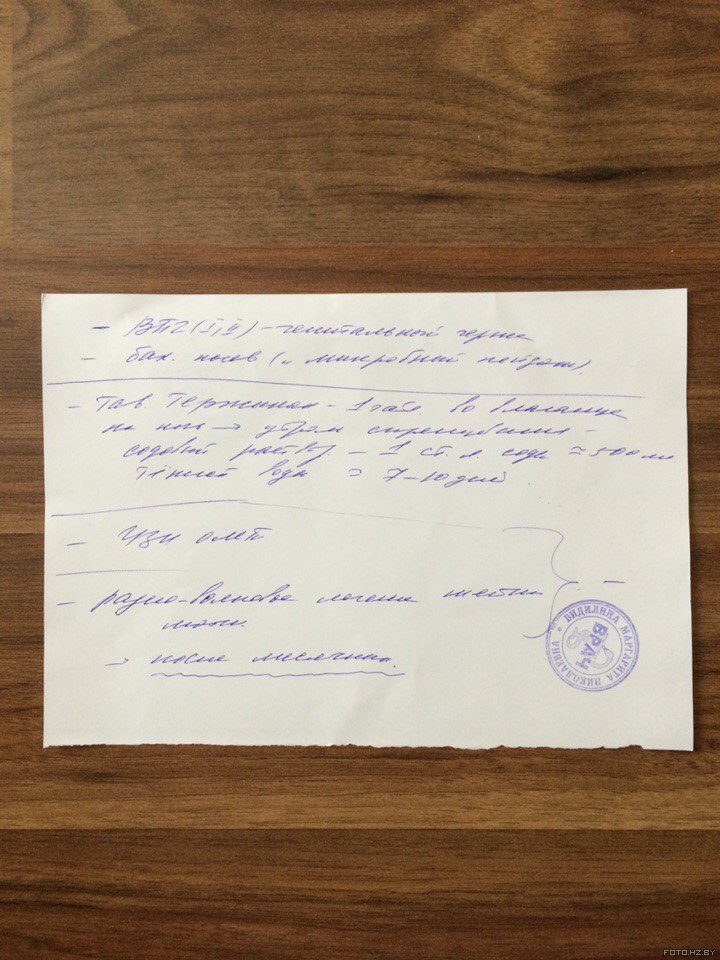 - ВПГ (I, II) - генитальный герпес
- бак. посев (и микробный пейзаж).
- Таб. Тержинан - 1 таб во влагалище
на ночь → утром спринцевания -
содовый раствор - 1 ст. л соды ≈ 500 мл
тёплой воды ≈ 7-10 дней.
- УЗИ ОМТ
- радио-волновое лечение шейки
матки.
→ после месячных.
ВИДИЛИНА МАРГАРИТА НИКОЛАЕВНА
ВРАЧ
FOTO.HZ.BY